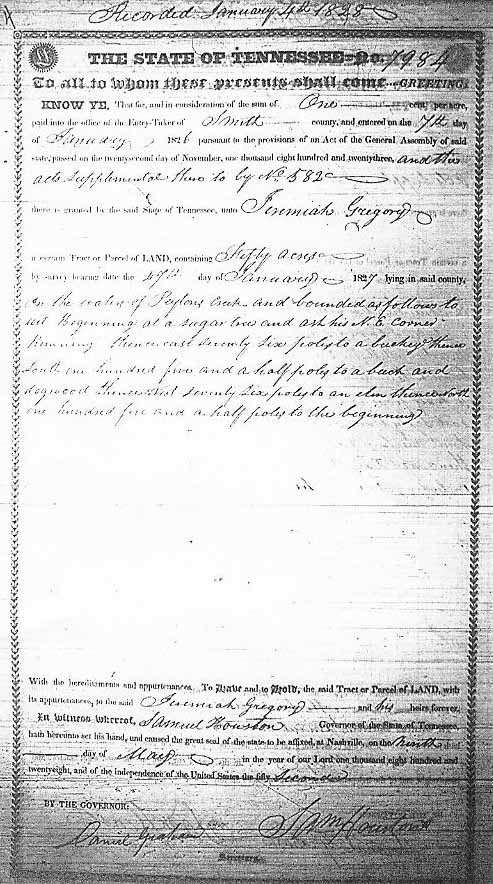 Recorded January 4th 1828
THE STATE OF TENNESSEE—No. 7984
To all to whom these presents shall come—GREETING:
KNOW YE, That for, and in consideration of the sum of One cent per acre,
paid into the office of the Entry-Taker of Smith county, and entered on the 7th day
of January 1826 pursuant to the provisions of an Act of the General Assembly of said
state, passed on the twenty-second day of November, one thousand eight hundred and twentythree, and the
acts supplemental there to by No. 582
there is granted by the said State of Tennessee, unto Jeremiah Gregory
a certain Tract or Parcel of LAND, containing Fifty acres
by survey bearing date the day of January 1827 lying in said county,
On the waters of Peytons Creek and bounded as follows to
wit Beginning at a sugar tree and ash his N. E. Corner
Running thence east seventy six poles to a buckeye thence
South one hundred five and a half poles to a buck and
dogwood thence West seventy six poles to an elm thence North
one hundred five and a half poles to the beginning
With the hereditaments and appurtenances. To Have and to Hold, the said Tract or Parcel of LAND, with
its appurtenances, to the said Jeremiah Gregory and his heirs forever.
In witness whereof, Samuel Houston Governor of the State of Tennessee,
hath hereunto set his hand, and caused the great seal of the state to be affixed, at Nashville, on the Ninth
day of May in the year of our Lord one thousand eight hundred and
twentyeight, and of the independence of the United States the fifty Second
BY THE GOVERNOR:
Daniel Graham Sam Houston